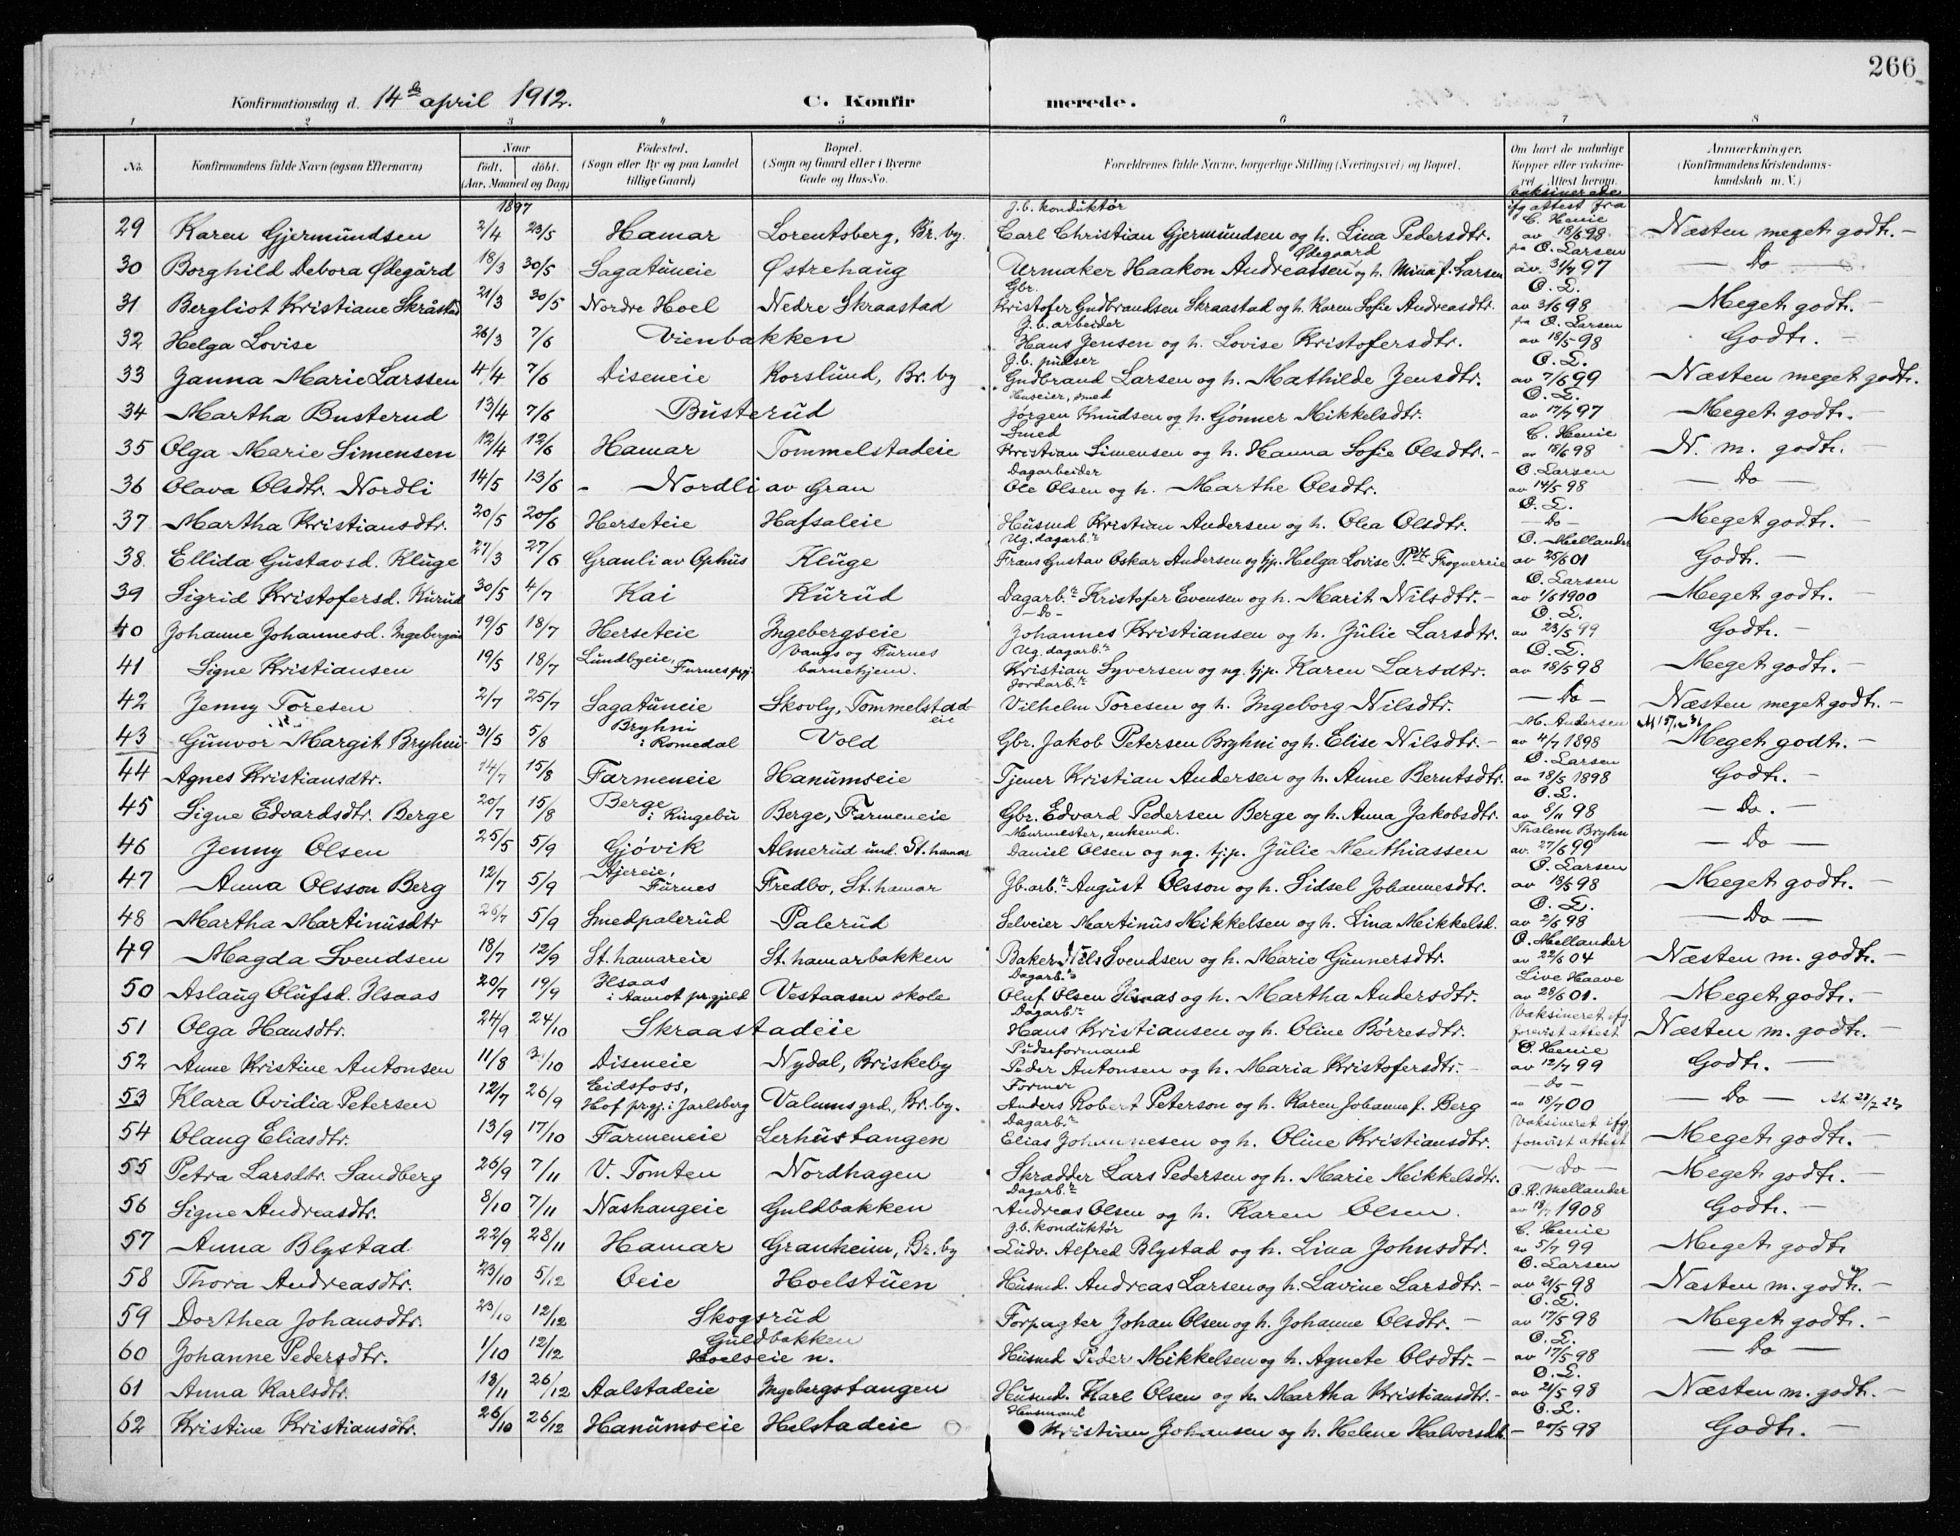 266
Konfirmationsdag d. 14de april 1912. C. Konfirmerede.
1 2 3 4 5 6 7 8
No. Konfirmandens fulde Navn (ogsaa Efternavn) Naar født. døbt. (Aar, Maaned og Dag) Fødested. (Sogn eller By og paa Landet tillige Gaard) Bopæl. (Sogn og Gaard eller i Byerne Gade og Hus-No. Forældrenes fulde Navne, borgerlige Stilling (Næringsvei) og Bopæl. Om havt de naturlige Kopper eller vaksineret. Attest herom. Anmærkninger. (Konfirmandens Kristendomskundskab m. V.)
1897
29 Karen Gjermundsen 2/4 23/5 Hamar Lorentsberg, Br. by. J.b. konduktør Carl Christian Gjermundsen og h. Lina Pedersdtr. vaksinerede ifg attest fra C. Henie av 18/6 98 Næsten meget godt. –
30 Borghild Debora Ødegård 18/3 30/5 Sagatuneie Østrehaug Urmaker Haakon Andreassen Ødegaard og h. Mina f. Larsen fra O. Larsen av. 31/7 97 — Do —
31 Bergliot Kristiane Skråstad 21/3 30/5 Nordre Hoel Nedre Skraastad Gbr. Kristofer Gudbrandsen Skraastad og h. Karen Sofie Andreasdtr. O. L. av 3/6 98 Meget godt. –
32 Helga Lovise 26/3 7/6 Vienbakken J.b. arbeider Hans Jensen og h. Lovise Kristofersdtr. fra O. Larsen av 18/5 98 Godt. –
33 Janna Marie Larssen 4/4 7/6 Diseneie Korslund, Br. by J.b. pudser Gudbrand Larsen og h. Mathilde Jensdtr. O. L. av 7/6 99 Næsten meget godt.
34 Martha Busterud 13/4 7/6 Busterud Huseier, smed Jørgen Knudsen og h. Gønner Mikkelsdtr. O. L. av 17/7 97 Meget godt. –
35 Olga Marie Simensen 12/4 12/6 Hamar Tommelstadeie Smed Kristian Simensen og h. Hanna Sofie Olsdtr. – C. Henie av 18/6 98 N. m. godt. –
36 Olava Olsdtr. Nordli 14/5 13/6 – Nordli av Gran Dagarbeider Ole Olsen og h. Marthe Olsdtr. O. Larsen av 14/5 98 — Do —
37 Martha Kristiansdtr. 20/5 20/6 Herseteie Hafsaleie Husmd Kristian Andersen og h. Olea Olsdtr. O. L. — Do — Meget godt. –
38. Ellida Gustavsd. Kluge 27/3 27/6 Granli av Ophus Kluge Ug. dagarb.r Frans Gustav Oskar Andersen og tjp. Helga Lovise P.dtr. Frognereie O. Mellander av 25/6 01 Godt. –
39 Sigrid Kristofersd. Kurud 30/5 4/7 Kai Kurud Dagarb.r Kristofer Evensen og h. Marit Nilsdtr. – O. Larsen av 1/6 1900 Meget godt. –
40 Johanne Johannesd. Ingebergeie 19/5 18/7 Herseteie Ingebergseie — Do — Johannes Kristiansen og h. Julie Larsdtr. O. L. av 23/5 99 Godt. –
41 Signe Kristiansen 19/5 18/7 Lundbyeie, Furnes pgj. Vangs og Furnes barnehjem. Ug. dagarb.r Kristian Syversen og ug. tjp. Karen Larsdtr. O. L. av 18/5 98 Meget godt. –
42 Jenny Toresen 2/7 25/7 Sagatuneie Skovly, Tommelstadeie Jordarb.r Vilhelm Toresen og h. Ingeborg Nilsdtr. — Do — Næsten meget godt. –
43 Gunvor Margit Bryhni 31/5 5/8 Bryhni i Romedal Vold Gbr. Jakob Petersen Bryhni og h. Elise Nilsdtr. – M. Andersen av 4/7 1898 Meget godt. –
44 Agnes Kristiansdtr. 14/7 15/8 Farmeneie Hanumseie Tjener Kristian Andersen og h. Anne Berntsdtr. O. Larsen av 18/5 1898 Godt. –
45 Signe Edvardsdtr. Berge 20/7 15/8 Berge i Ringebu Berge, Farmeneie Gbr. Edvard Pedersen Berge og h. Anna Jakobsdtr. O. L. av 8/11 98 — Do. —
46 Jenny Olsen 25/5 5/9 Gjøvik Almerud und. St. hamar Murmester, enkemd. Daniel Olsen og ug. tjp. Julie Mathiassen Thalem Bryhn av. 27/6 99 — Do —
47 Anna Olsson Berg 12/7 5/9 Stjereie, Furnes Fredbo, St. hamar Jb. arb.r August Olsson og h. Sidsel Johannesdtr. O. Larsen av 18/5 98 Meget godt. –
48 Martha Martinusdtr 26/7 5/9 Smedpalerud Palerud Selveier Martinus Mikkelsen og h. Lina Mikkelsd. O. L. av 2/6 98 — Do —
49 Magda Svendsen 18/7 12/9 St. hamareie St. hamarbakken Baker Nils Svendsen og h. Marie Gunnersdtr. O. Mellander av 22/6 04 Næsten m. godt. –
50 Aslaug Olufsd. Ilsaas 20/7 19/9 Ilsaas i Aamot prgjeld Vestaasen skole Dagarb.r Oluf Olsen Ilsaas og h. Martha Andersdtr. Live Haave av 23/6 01. Meget godt. –
51 Olga Hansdtr. 24/9 24/10 Skraastadeie Dagarb.r Hans Kristiansen og h. Oline Børresdtr. Vaksineret ifg forevist attest Næsten m. godt. –
52 Anne Kristine Antonsen 11/8 3/10 Diseneie Nydal, Briskeby Pudseformand Peder Antonsen og h. Maria Kristofersdtr. – C. Henie av 12/7 99 Godt. –
53 Klara Ovidia Petersen 12/7 26/9 Eidsfoss, Hof prgj. i Jarlsberg Valumsgrd., Br. by. Former Anders Robert Peterson og h. Karen Johanne f. Berg — Do — av 18/7 00 — Do —
54 Olaug Eliasdtr. 13/9 17/10 Farmeneie Lerhustangen Dagarb.r Elias Johannesen og h. Oline Kristiansdtr. Vaksineret ifg forevist attest Meget godt. –
55 Petra Larsdtr. Sandberg 26/9 7/11 V. Tomten Nordhagen Skrædder Lars Pedersen og h. Marie Mikkelsdtr. — Do — Meget godt. –
56 Signe Andreasdtr. 8/10 7/11 Nashaugeie Guldbakken Dagarb.r Andreas Olsen og h. Karen Olsen. O. R. Mellander av 1908 Godt. –
57 Anna Blystad 22/9 28/11 Hamar Granheim, Br. by J.b. konduktør Ludv. Alfred Blystad og h. Lina Johnsdtr. C. Henie av 5/7 99 Meget godt
58 Thora Andreasdtr. 23/10 5/12 Oeie Hoelstuen Husmd. Andreas Larsen og h. Lavine Larsdtr. – O. Larsen av 21/5 98 Næsten m. godt. –
59 Dorthea Johansdtr. 23/10 12/12 Skogsrud Forpagter Johan Olsen og h. Johanne Olsdtr. – O. L. av 17/5 98 Meget godt. –
60 Johanne Pedersdtr. 1/10 12/12 Guldbakken Hoelseie n. Husmd Peder Mikkelsen og h. Agnete Olsdtr. – O. L. av 17/5 98 — Do —
61 Anna Karlsdtr. 18/11 26/12 Aalstadeie Ingebergstangen Husmd. Karl Olsen og h. Martha Kristiansdtr. – O. L. av 21/5 98 Næsten m. godt. –
62 Kristine Kristiansdtr. 26/10 26/12 Hanumseie Helstadeie Husmand Kristian Johansen og h. Helene Halvorsdtr. – O. L. 20/5 98 Godt. –